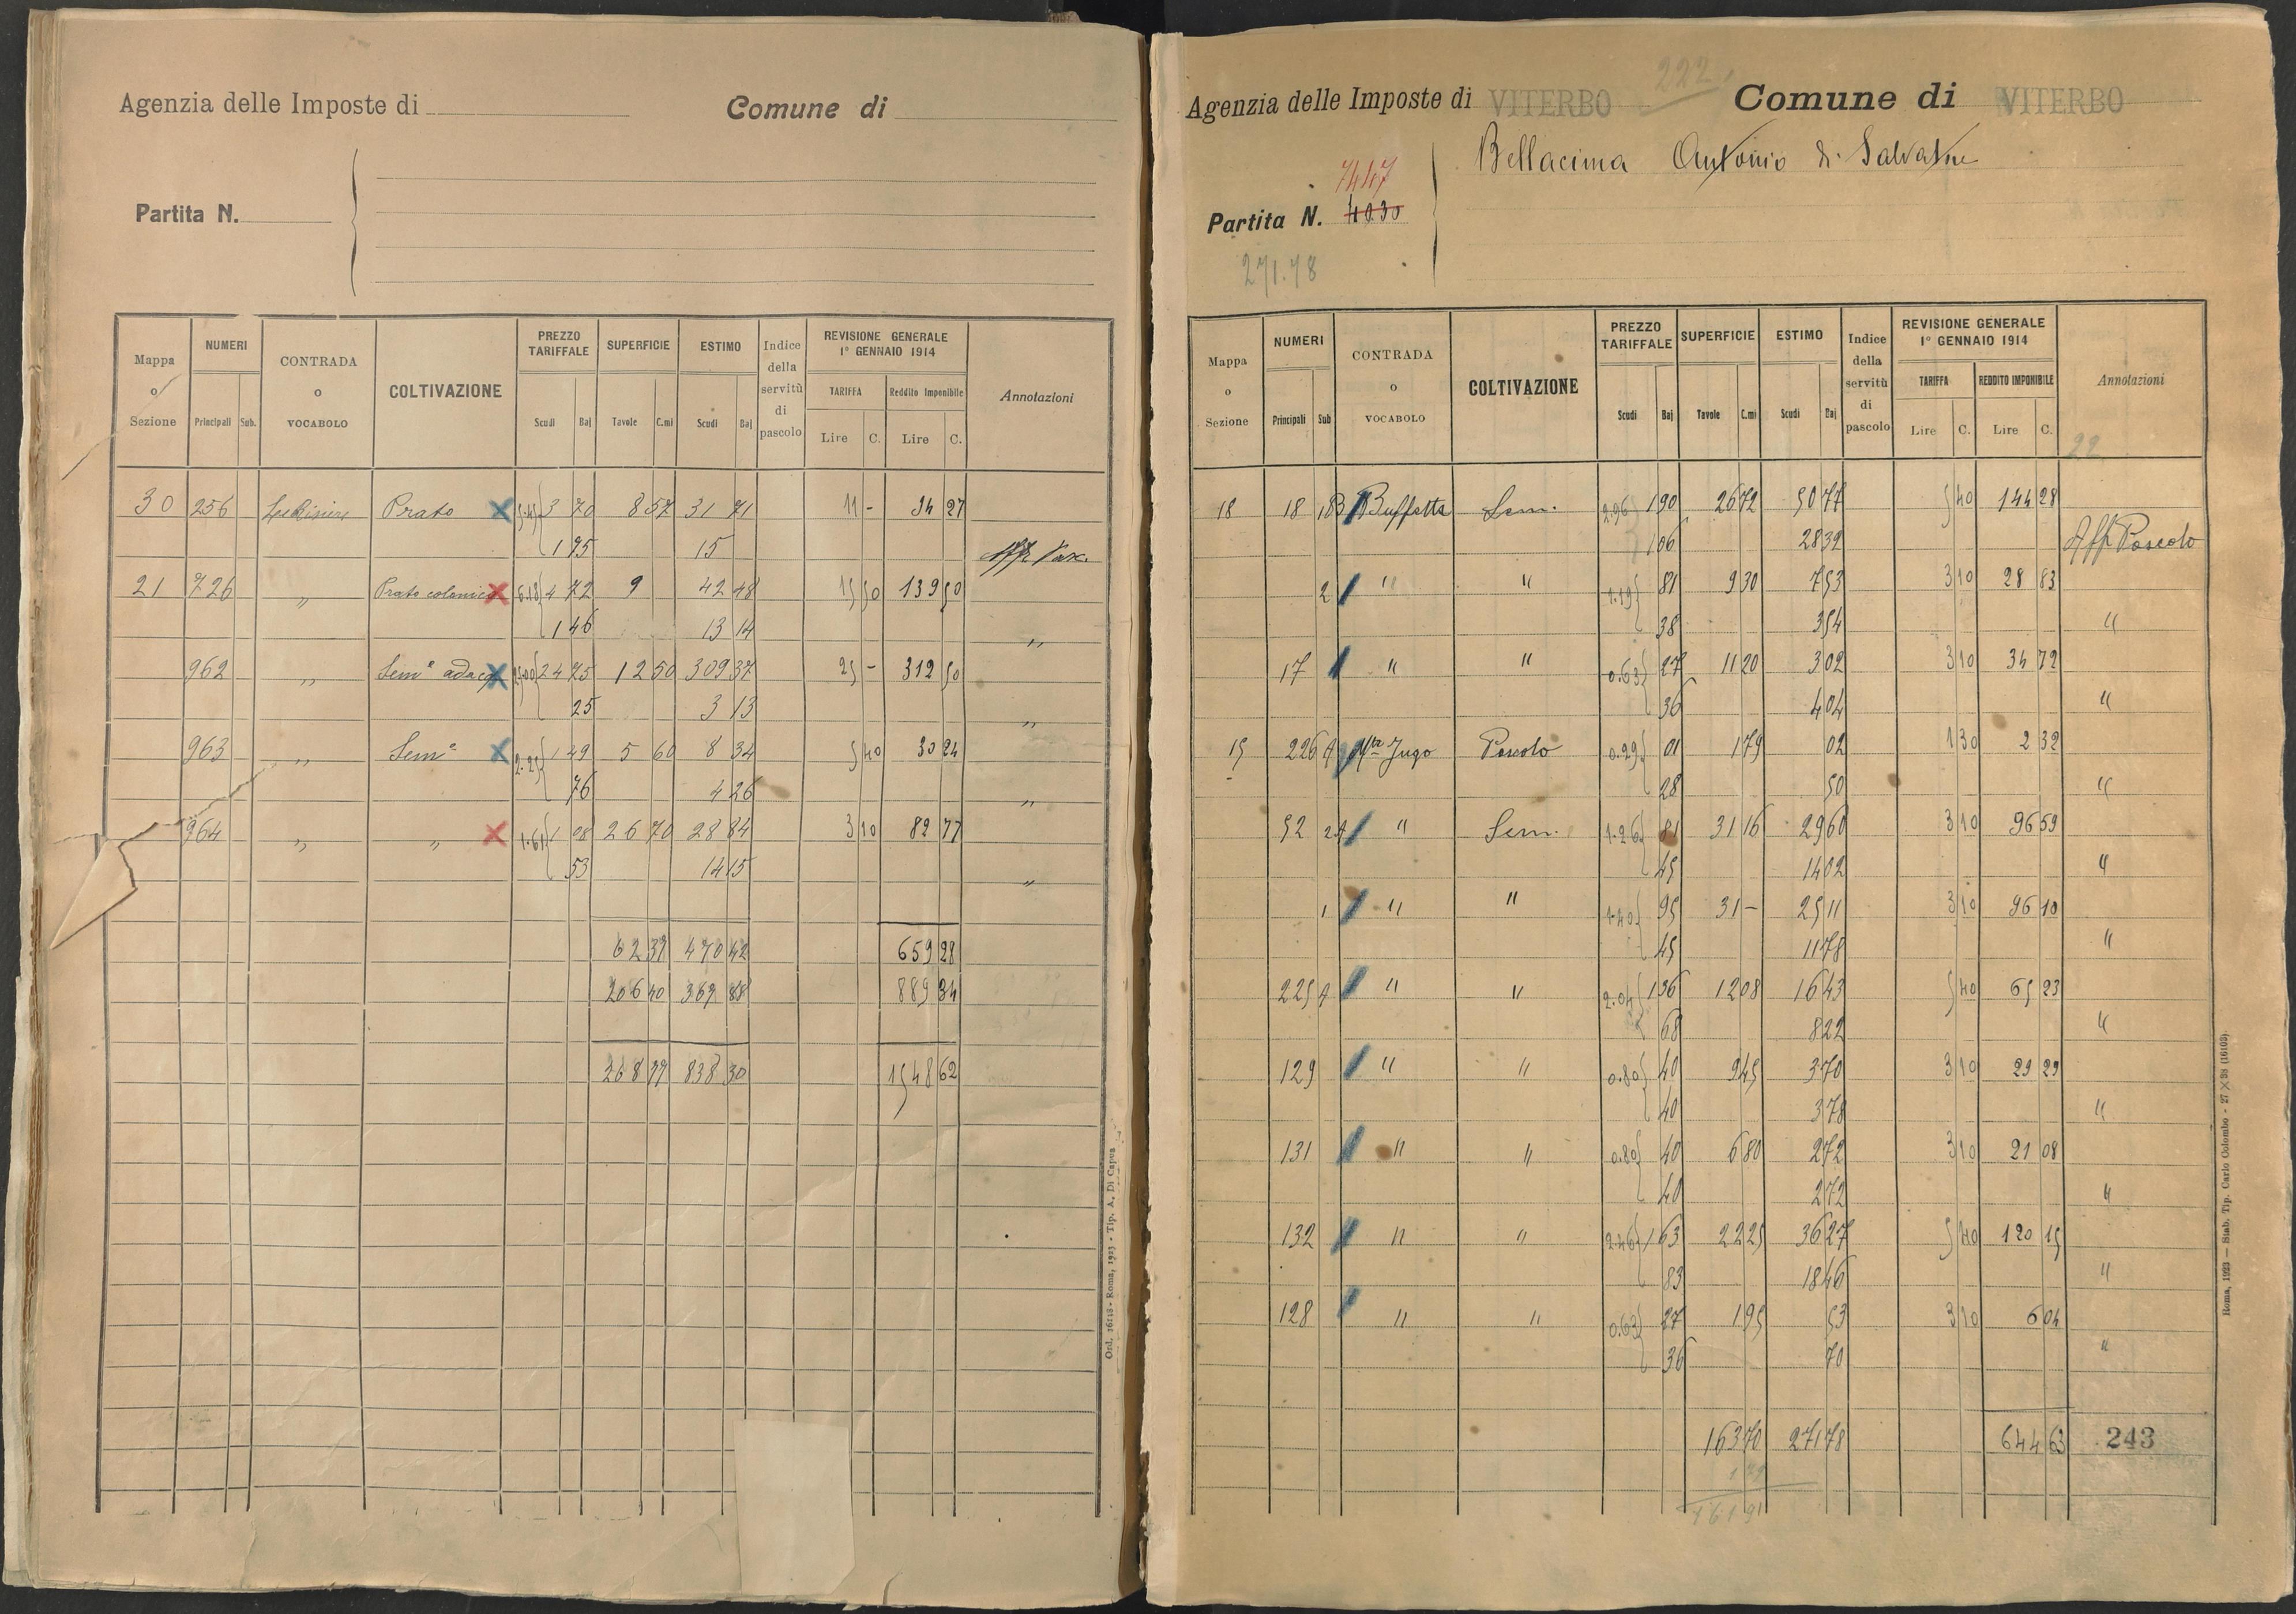 Agenzia delle Imposte di
Comune di
Partita N.
Mappa o Sezione NUMERI Principali Sub. CONTRADA o VOCABOLO COLTIVAZIONE PREZZO TARIFFALE Scudi Baj SUPERFICIE Tavole C.mi ESTIMO Scudi Baj Indice della servitù di pascolo REVISIONE GENERALE 1° GENNAIO 1914 TARIFFA Lire C. Reddito Imponibile Lire C. Annotazioni
30 256 Prato 3 70 8 57 31 71 11 - 94 27
1 75 15
21 726 " Prato colonico 6.18 4 72 9 42 48 15 50 139 50
1 46 13 14 "
962 " Sem° adacq 25.00 24 75 12 50 309 37 25 - 312 50
25 3 13 "
963 " Sem° 2.25 1 49 5 60 8 34 5 40 30 24
76 4 26 "
964 " " 1.61 1 08 26 70 28 84 3 10 82 77
53 14 15 "
62 37 470 42 659 28
206 40 367 88 889 34
268 77 838 30 1548 62
Onl. 16118 - Roma, 1923 - Tip. A. Di Capua
222
Agenzia delle Imposte di VITERBO
Comune di VITERBO
Bellacima Antonio di Salvatore
7447
Partita N. 4030
271.78
Mappa o Sezione NUMERI Principali Sub CONTRADA o VOCABOLO COLTIVAZIONE PREZZO TARIFFALE Scudi Baj SUPERFICIE Tavole C.mi ESTIMO Scudi Baj Indice della servitù di pascolo REVISIONE GENERALE 1° GENNAIO 1914 TARIFFA Lire C. REDDITO IMPONIBILE Lire C. Annotazioni
22
18 18 Buffetta Sem. 2.96 1 90 26 72 50 77 5 40 144 28
1 06 28 32 Aff Pascolo
2 " " 1.19 81 9 30 7 53 3 10 28 83
38 3 54 "
17 " " 0.63 27 11 20 3 02 3 10 34 72
36 4 04 "
15 226 A Jugo Pascolo 0.29 01 1 79 02 1 30 2 32
28 50 "
52 2A " Sem. 1.26 81 31 16 29 60 3 10 96 59
45 14 02 "
1 " " 1.40 95 31 - 25 11 3 10 96 10
45 11 78 "
225 A " " 2.04 1 36 12 08 16 43 5 40 65 23
68 8 22 "
129 " " 0.80 40 9 45 3 70 3 10 29 29
40 3 78 "
131 " " 0.80 40 6 80 2 72 3 10 21 08
40 2 72 "
132 " " 2.46 1 63 22 25 36 27 5 40 120 15
83 18 46 "
128 " " 0.63 27 1 95 53 3 10 6 04
36 70 "
163 70 271 78 644 63 243
1 79
161 91
Roma, 1923 — Stab. Tip. Carlo Colombo - 27 × 38 (16103)